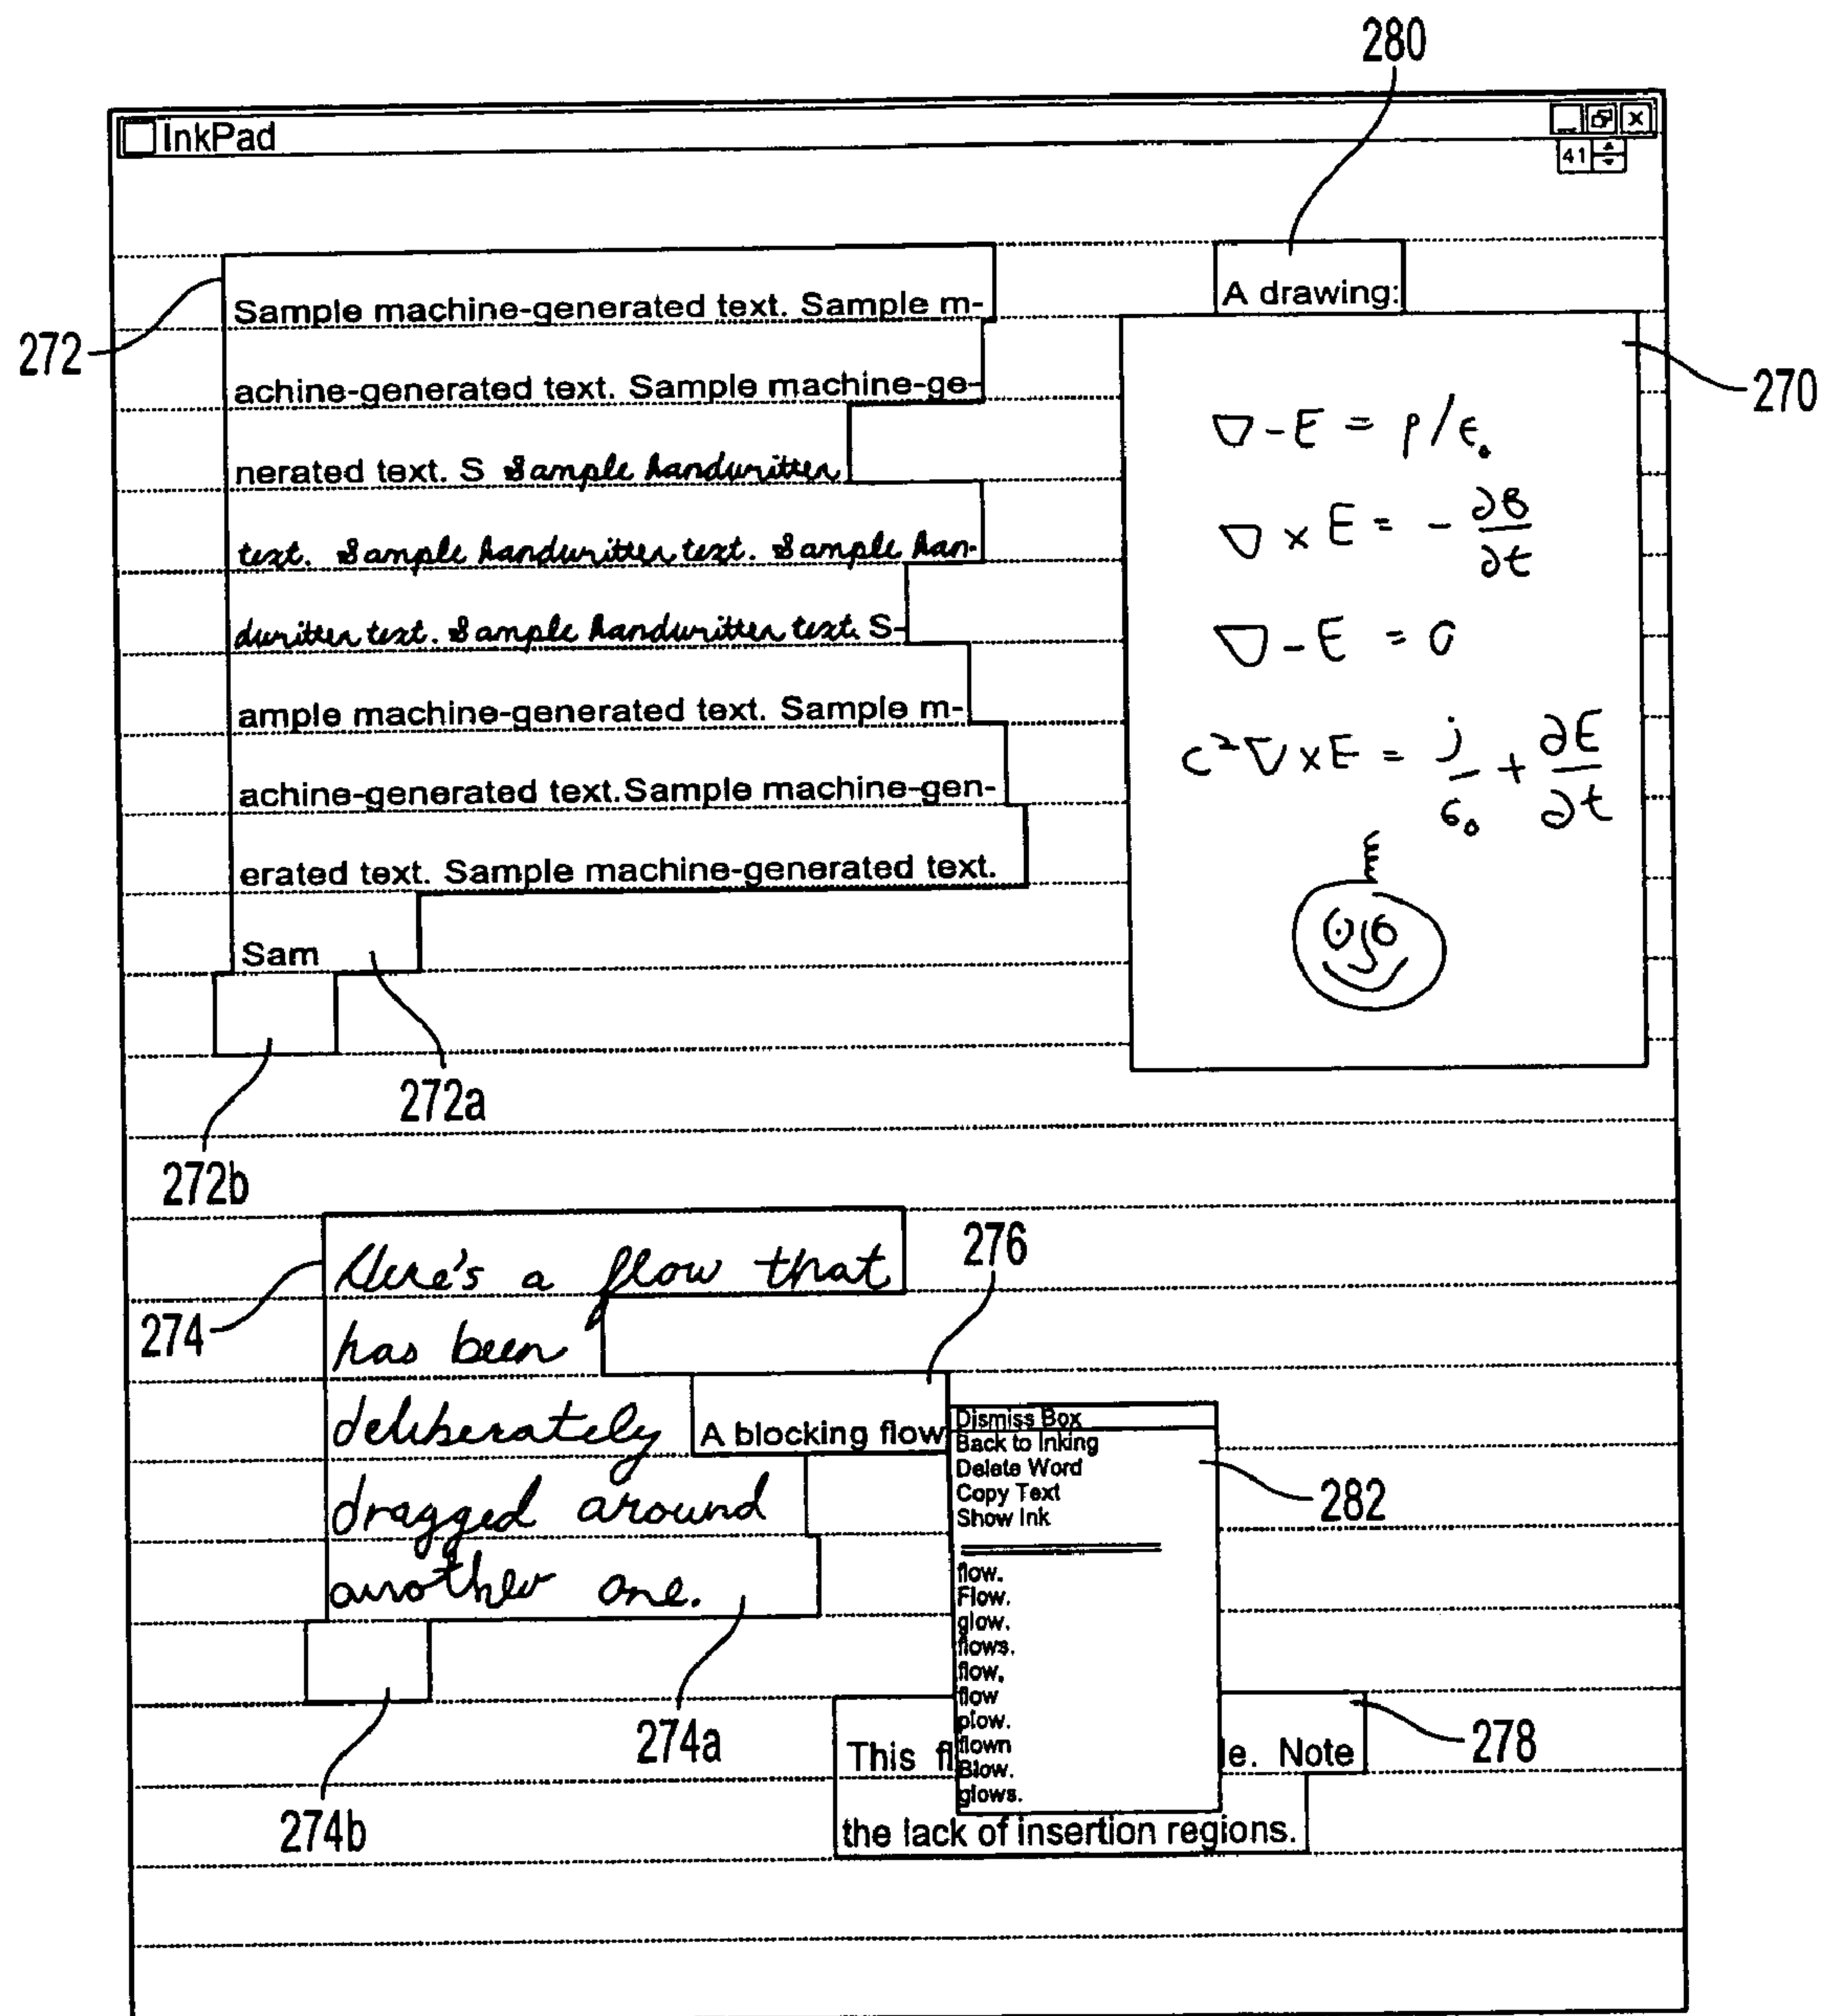 280
InkPad
41
272
Sample machine-generated text. Sample m-
achine-generated text. Sample machine-ge-
nerated text. S Sample handwritten
text. Sample handwritten text. Sample han-
dwritten text. Sample handwritten text. S-
ample machine-generated text. Sample m-
achine-generated text.Sample machine-gen-
erated text. Sample machine-generated text.
Sam
272a
272b
A drawing:
270
∇-E = ρ/ϵ₀
∇ × E = - ∂B/∂t
∇-E = 0
c²∇×E = j/ϵ₀ + ∂E/∂t
274
Here's a flow that
has been
deliberately
dragged around
another one.
274a
274b
276
A blocking flow
Dismiss Box
Back to Inking
Delete Word
Copy Text
Show Ink
282
flow.
Flow.
glow.
flows.
flow,
flow
plow.
flown
Blow.
glows.
This fl e. Note
278
the lack of insertion regions.